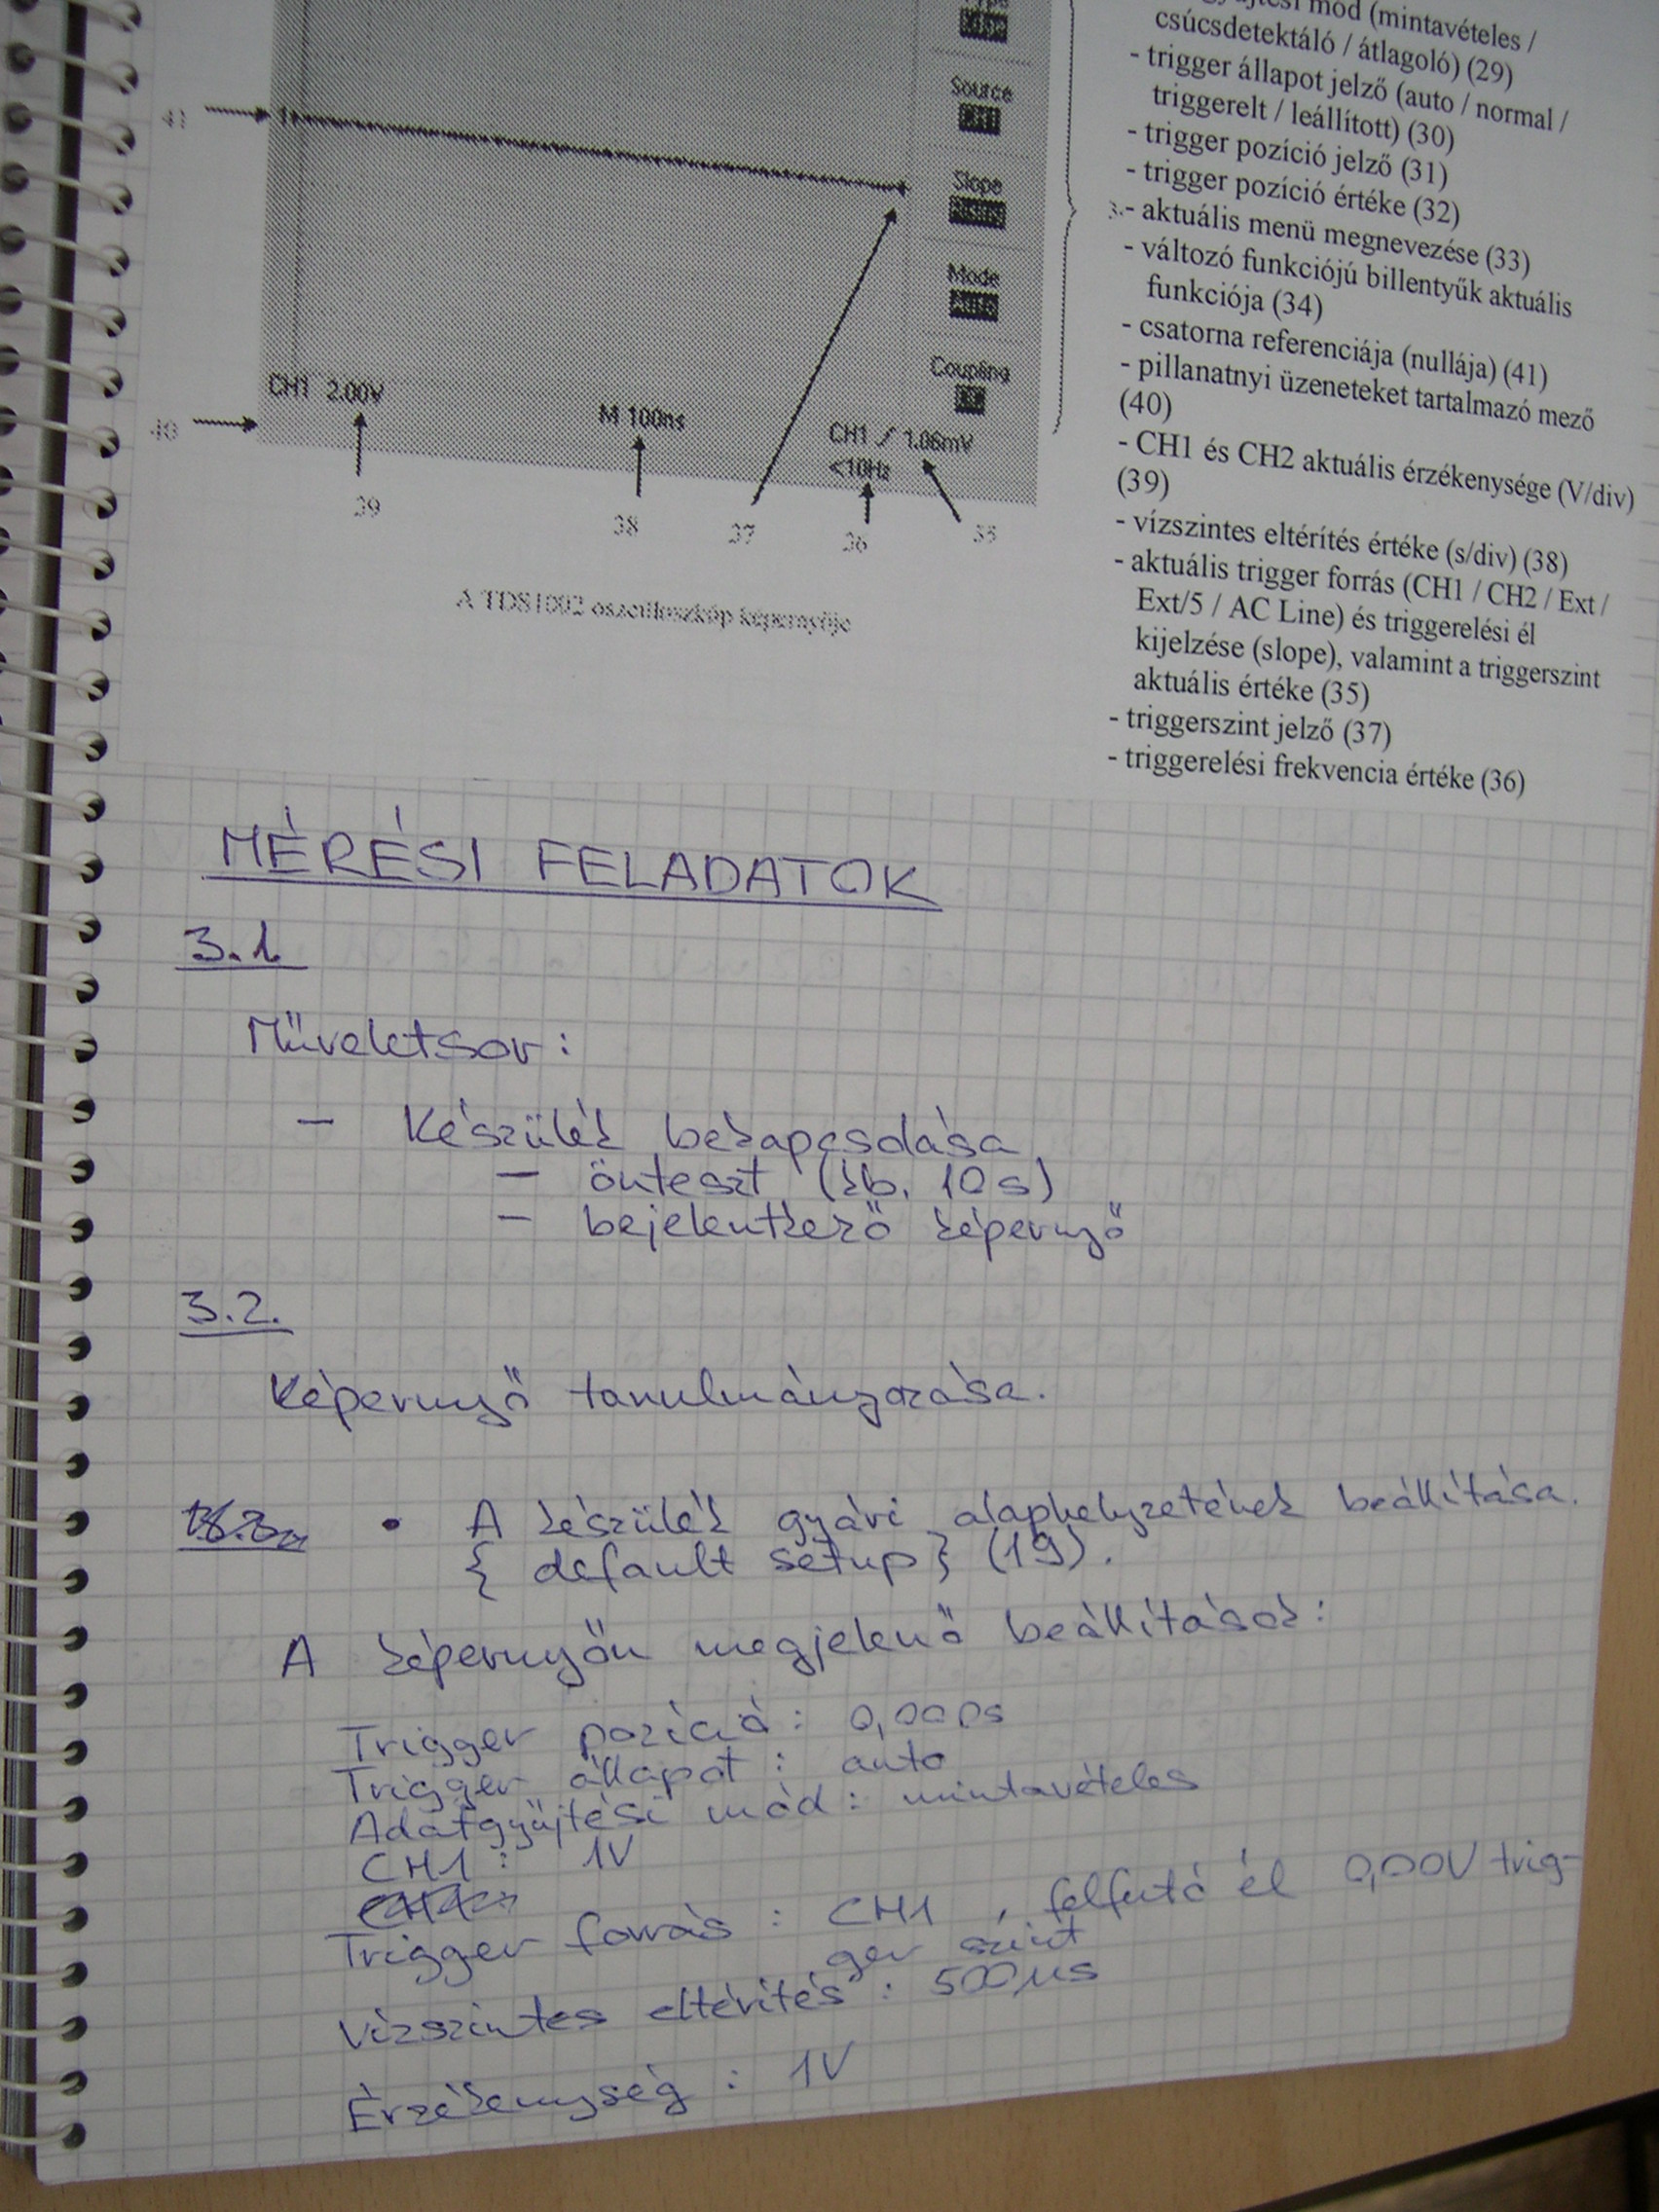 Source
CH1
Slope
Mode
Coupling
CH1 2.00V
M 100ns
CH1 / 1.06mV
<10Hz
41
40
39
38
37
36
35
A TDS1002 oszcilloszkóp képernyője
mód (mintavételes /
csúcsdetektáló / átlagoló) (29)
- trigger állapot jelző (auto / normal /
triggerelt / leállított) (30)
- trigger pozíció jelző (31)
- trigger pozíció értéke (32)
- aktuális menü megnevezése (33)
- változó funkciójú billentyűk aktuális
funkciója (34)
- csatorna referenciája (nullája) (41)
- pillanatnyi üzeneteket tartalmazó mező
(40)
- CH1 és CH2 aktuális érzékenysége (V/div)
(39)
- vízszintes eltérítés értéke (s/div) (38)
- aktuális trigger forrás (CH1 / CH2 / Ext /
Ext/5 / AC Line) és triggerelési él
kijelzése (slope), valamint a triggerszint
aktuális értéke (35)
- triggerszint jelző (37)
- triggerelési frekvencia értéke (36)
MÉRÉSI FELADATOK
3.1.
Műveletsor:
- Készülék bekapcsolása
- önteszt (kb. 10s)
- bejelentkező képernyő
3.2.
Képernyő tanulmányozása.
• A készülék gyári alaphelyzetének beállítása.
{ default setup } (19).
A képernyőn megjelenő beállítások:
Trigger pozíció: 0,000s
Trigger állapot: auto
Adatgyűjtési mód: mintavételes
CH1: 1V
Trigger forrás: CH1, felfutó él 0,00V trig-
ger szint
Vízszintes eltérítés: 500µs
Érzékenység: 1V